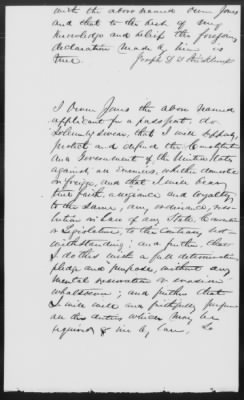 with the above named Oram Jones
and that to the best of my
knowledge and belief the foregoing
declaration made by him is
true.
Joseph D

I Oram Jones the above named
applicant for a passport, do
solemnly swear, that I will support,
protect and defend the Constitution
and Government of the United States
against all Enemies, whether domestic
or foreign, and that I will bear
true faith, allegiance and loyalty
to the same, any ordinance, reso-
lution or Law of any State, Convention
or Legislature, to the Contrary not-
withstanding; and further, that
I do this with a full determination
pledge and purpose, without any
mental reservation or evasion
whatsoever; and further that
I will well and faithfully perform
all the duties which may be
required of me by law. So